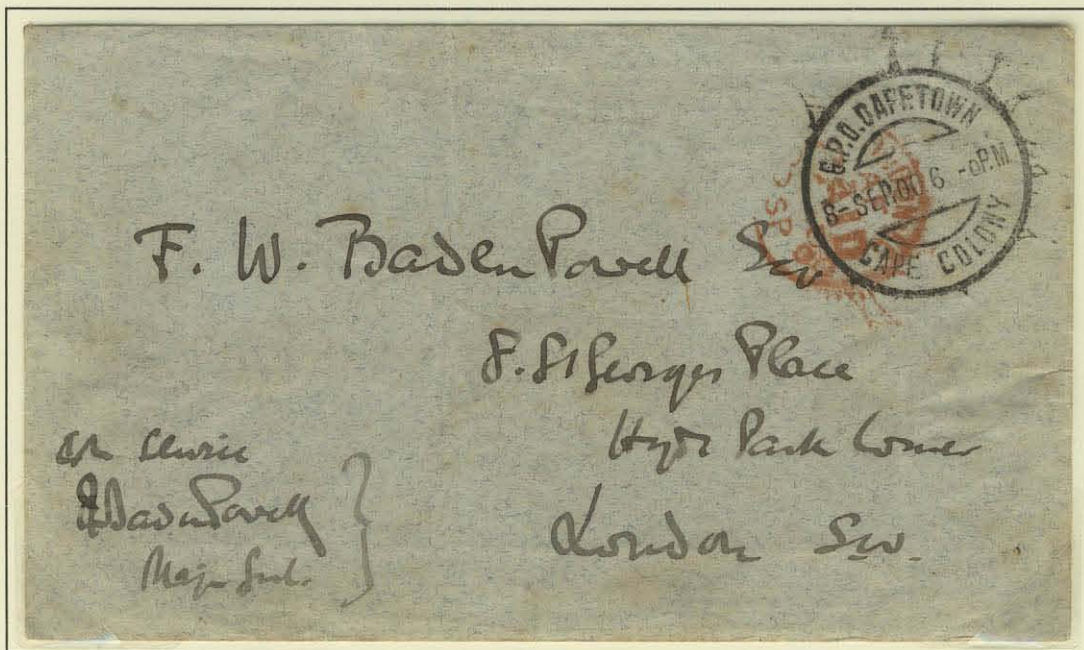 G.P.O. CAPETOWN
8-SEP.00 6-0P.M
CAPE COLONY
PAID
F. W. Baden Powell
8. St Georges Place
Hyde Park Corner
London SW.
On Service
Baden Powell
Major Genl.